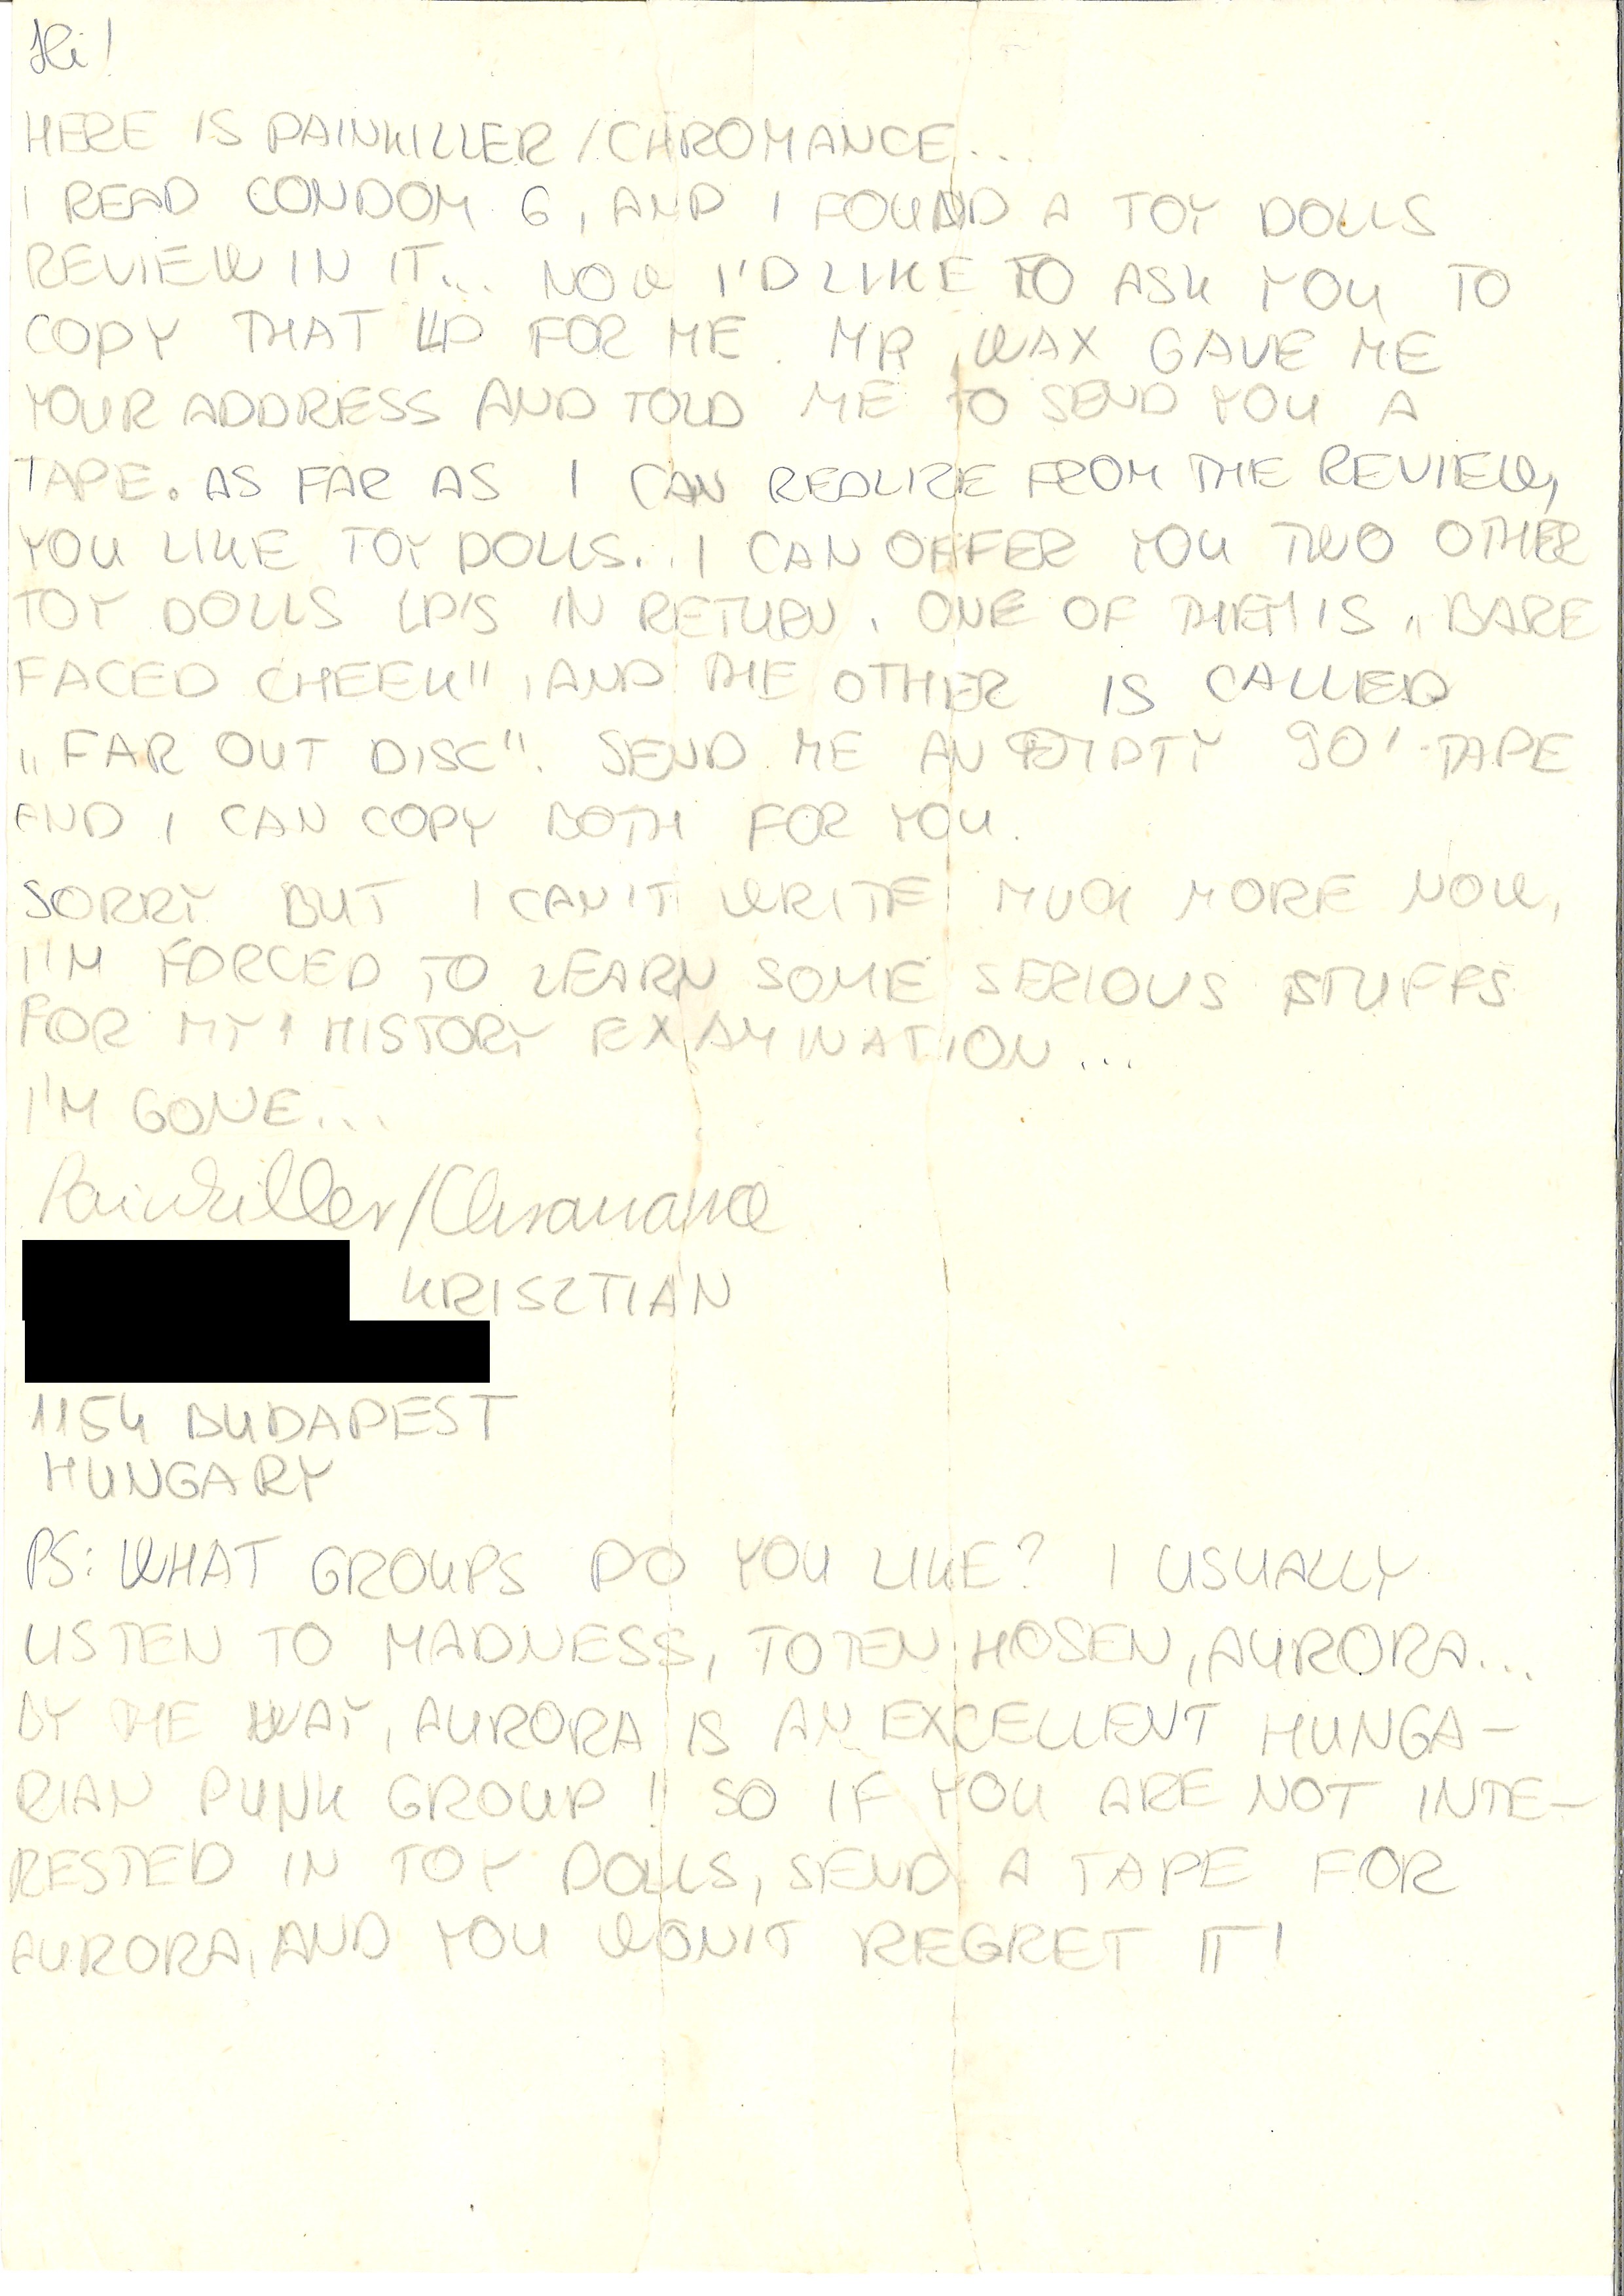 Hi!
HERE IS PAINKILLER/CHROMANCE...
I READ CONDOM 6, AND I FOUND A TOY DOLLS
REVIEW IN IT... NOW I'D LIKE TO ASK YOU TO
COPY THAT LP FOR ME. MR WAX GAVE ME
YOUR ADDRESS AND TOLD ME TO SEND YOU A
TAPE. AS FAR AS I CAN REALIZE FROM THE REVIEW,
YOU LIKE TOY DOLLS... I CAN OFFER YOU TWO OTHER
TOY DOLLS LP'S IN RETURN. ONE OF THEM IS „BARE
FACED CHEEK", AND THE OTHER IS CALLED
„FAR OUT DISC". SEND ME AN EMPTY 90' TAPE
AND I CAN COPY BOTH FOR YOU.
SORRY BUT I CAN'T WRITE MUCH MORE NOW,
I'M FORCED TO LEARN SOME SERIOUS STUFFS
FOR MY HISTORY EXAMINATION...
I'M GONE...
Painkiller/Chromance
KRISZTIÁN
1154 BUDAPEST
HUNGARY
PS: WHAT GROUPS DO YOU LIKE? I USUALLY
LISTEN TO MADNESS, TOTEN HOSEN, AURORA...
BY THE WAY, AURORA IS AN EXCELLENT HUNGA-
RIAN PUNK GROUP! SO IF YOU ARE NOT INTE-
RESTED IN TOY DOLLS, SEND A TAPE FOR
AURORA, AND YOU WON'T REGRET IT!